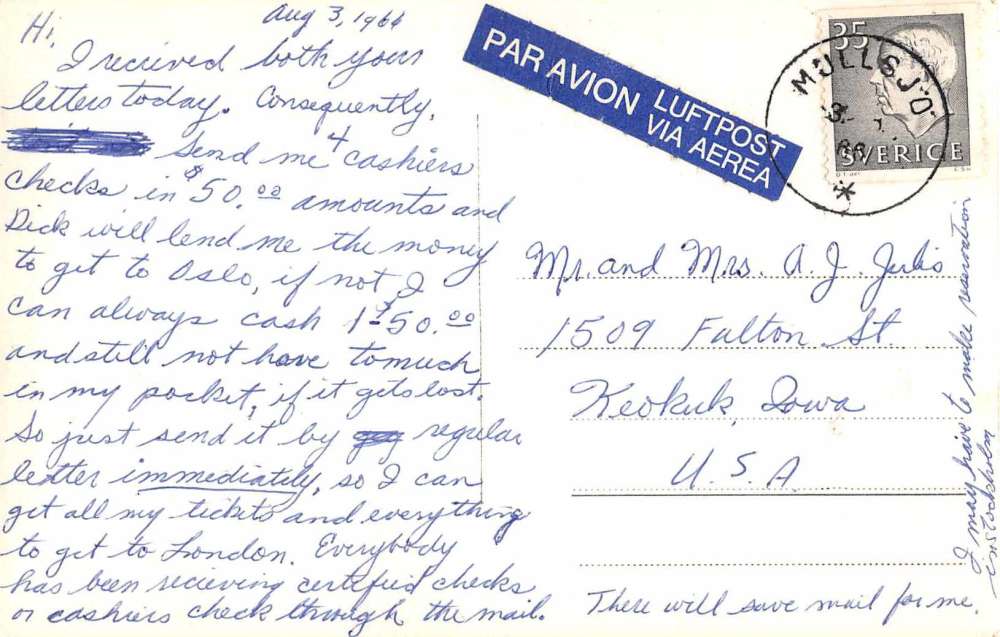 Aug 3, 1966
Hi,
I recieved both your
letters today. Consequently,
Send me 4 cashiers
checks in $50.00 amounts and
Dick will lend me the money
to get to Oslo, if not I
can always cash 1-$50.00
and still not have tomuch
in my pocket, if it gets lost.
So just send it by regular
letter immediately, so I can
get all my tickets and everything
to get to London. Everybody
has been recieving certified checks
or cashiers check through the mail.
PAR AVION
LUFTPOST
VIA AEREA
35
SVERIGE
MULLSJÖ
Mr. and Mrs. A. J. Julis
1509 Fulton St.
Keokuk, Iowa
U.S.A
There will save mail for me.
I may have to make reservation
in Stockholm